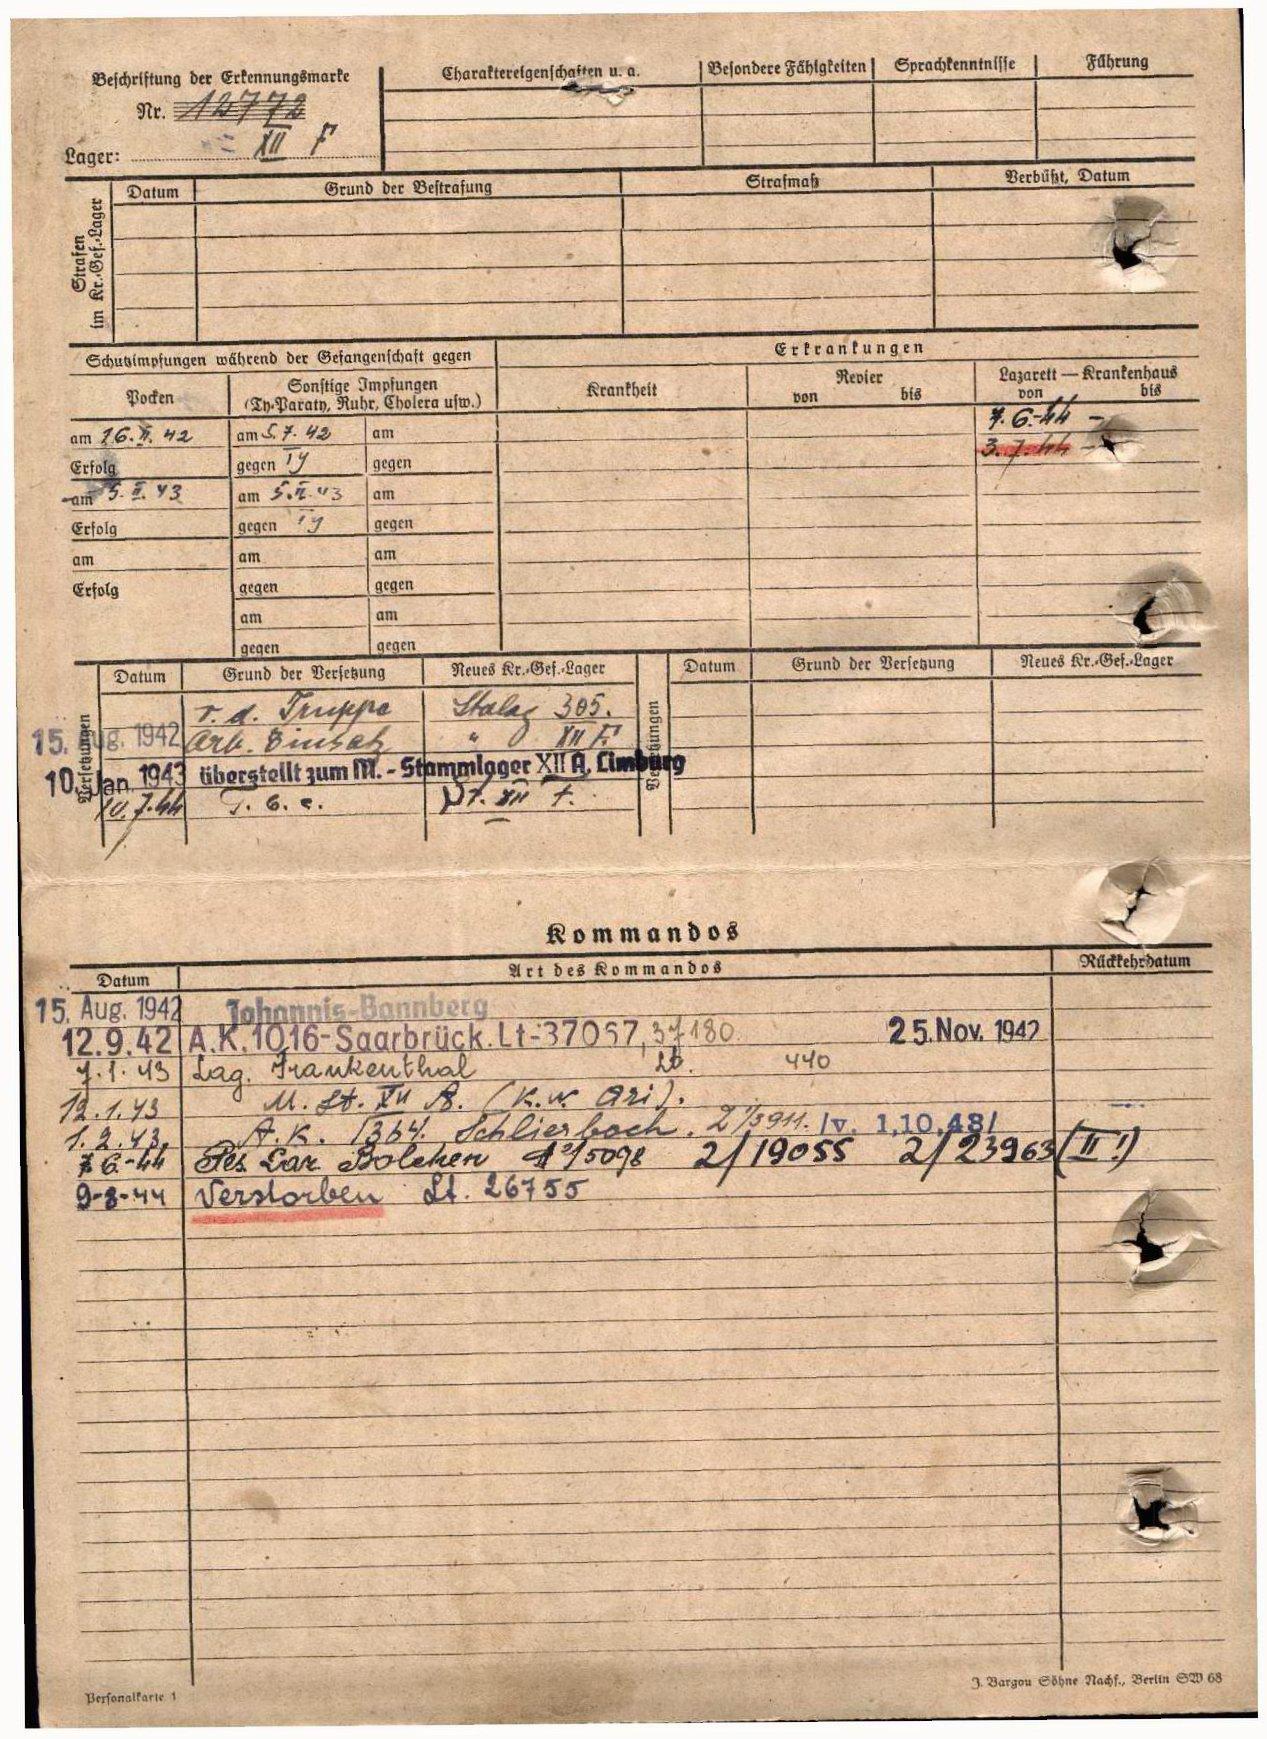 Beschriftung der Erkennungsmarke
Nr. 12772
Lager: XII F
Charaktereigenschaften u. a.
Besondere Fähigkeiten
Sprachkenntnisse
Führung
Strafen im Kr.-Gef.-Lager
Datum
Grund der Bestrafung
Strafmaß
Verbüßt, Datum
Schutzimpfungen während der Gefangenschaft gegen
Erkrankungen
Pocken
Sonstige Impfungen
(Ty-Paraty, Ruhr, Cholera usw.)
Krankheit
Revier
von bis
Lazarett — Krankenhaus
von bis
7.6.44 -
3.7.44 -
am 16.II.42 am 5.7.42 am
Erfolg gegen Ty gegen
am 5.II.43 am 5.II.43 am
Erfolg gegen Ty gegen
am am am
Erfolg gegen gegen
am am
gegen gegen
Versetzungen
Datum Grund der Versetzung Neues Kr.-Gef.-Lager
v. d. Truppe Stalag 305.
15. Aug. 1942 Arb. Einsatz " XII F.
10. Jan. 1943 überstellt zum M.-Stammlager XII A, Limburg
10.7.44 T. b. c. St. XII F.
Versetzungen
Datum Grund der Versetzung Neues Kr.-Gef.-Lager
Kommandos
Datum Art des Kommandos Rückkehrdatum
15. Aug. 1942 Johannis-Bannberg
12.9.42 A.K. 1016-Saarbrück. Lt-37057, 37180 25. Nov. 1942
7.1.43 Lag. Frankenthal Lt. 440
12.1.43 M. St. XII A. (K.w. Ari).
1.2.43. A.K. 1364. Schlierbach. 2/3911. /v. 1.10.48/
7.6.44 Res Laz Bolchen 2/5098 2/19055 2/23963 (II!)
9-8-44 Verstorben Lt. 26755
Personalkarte 1
J. Bargou Söhne Nachf., Berlin SW 68